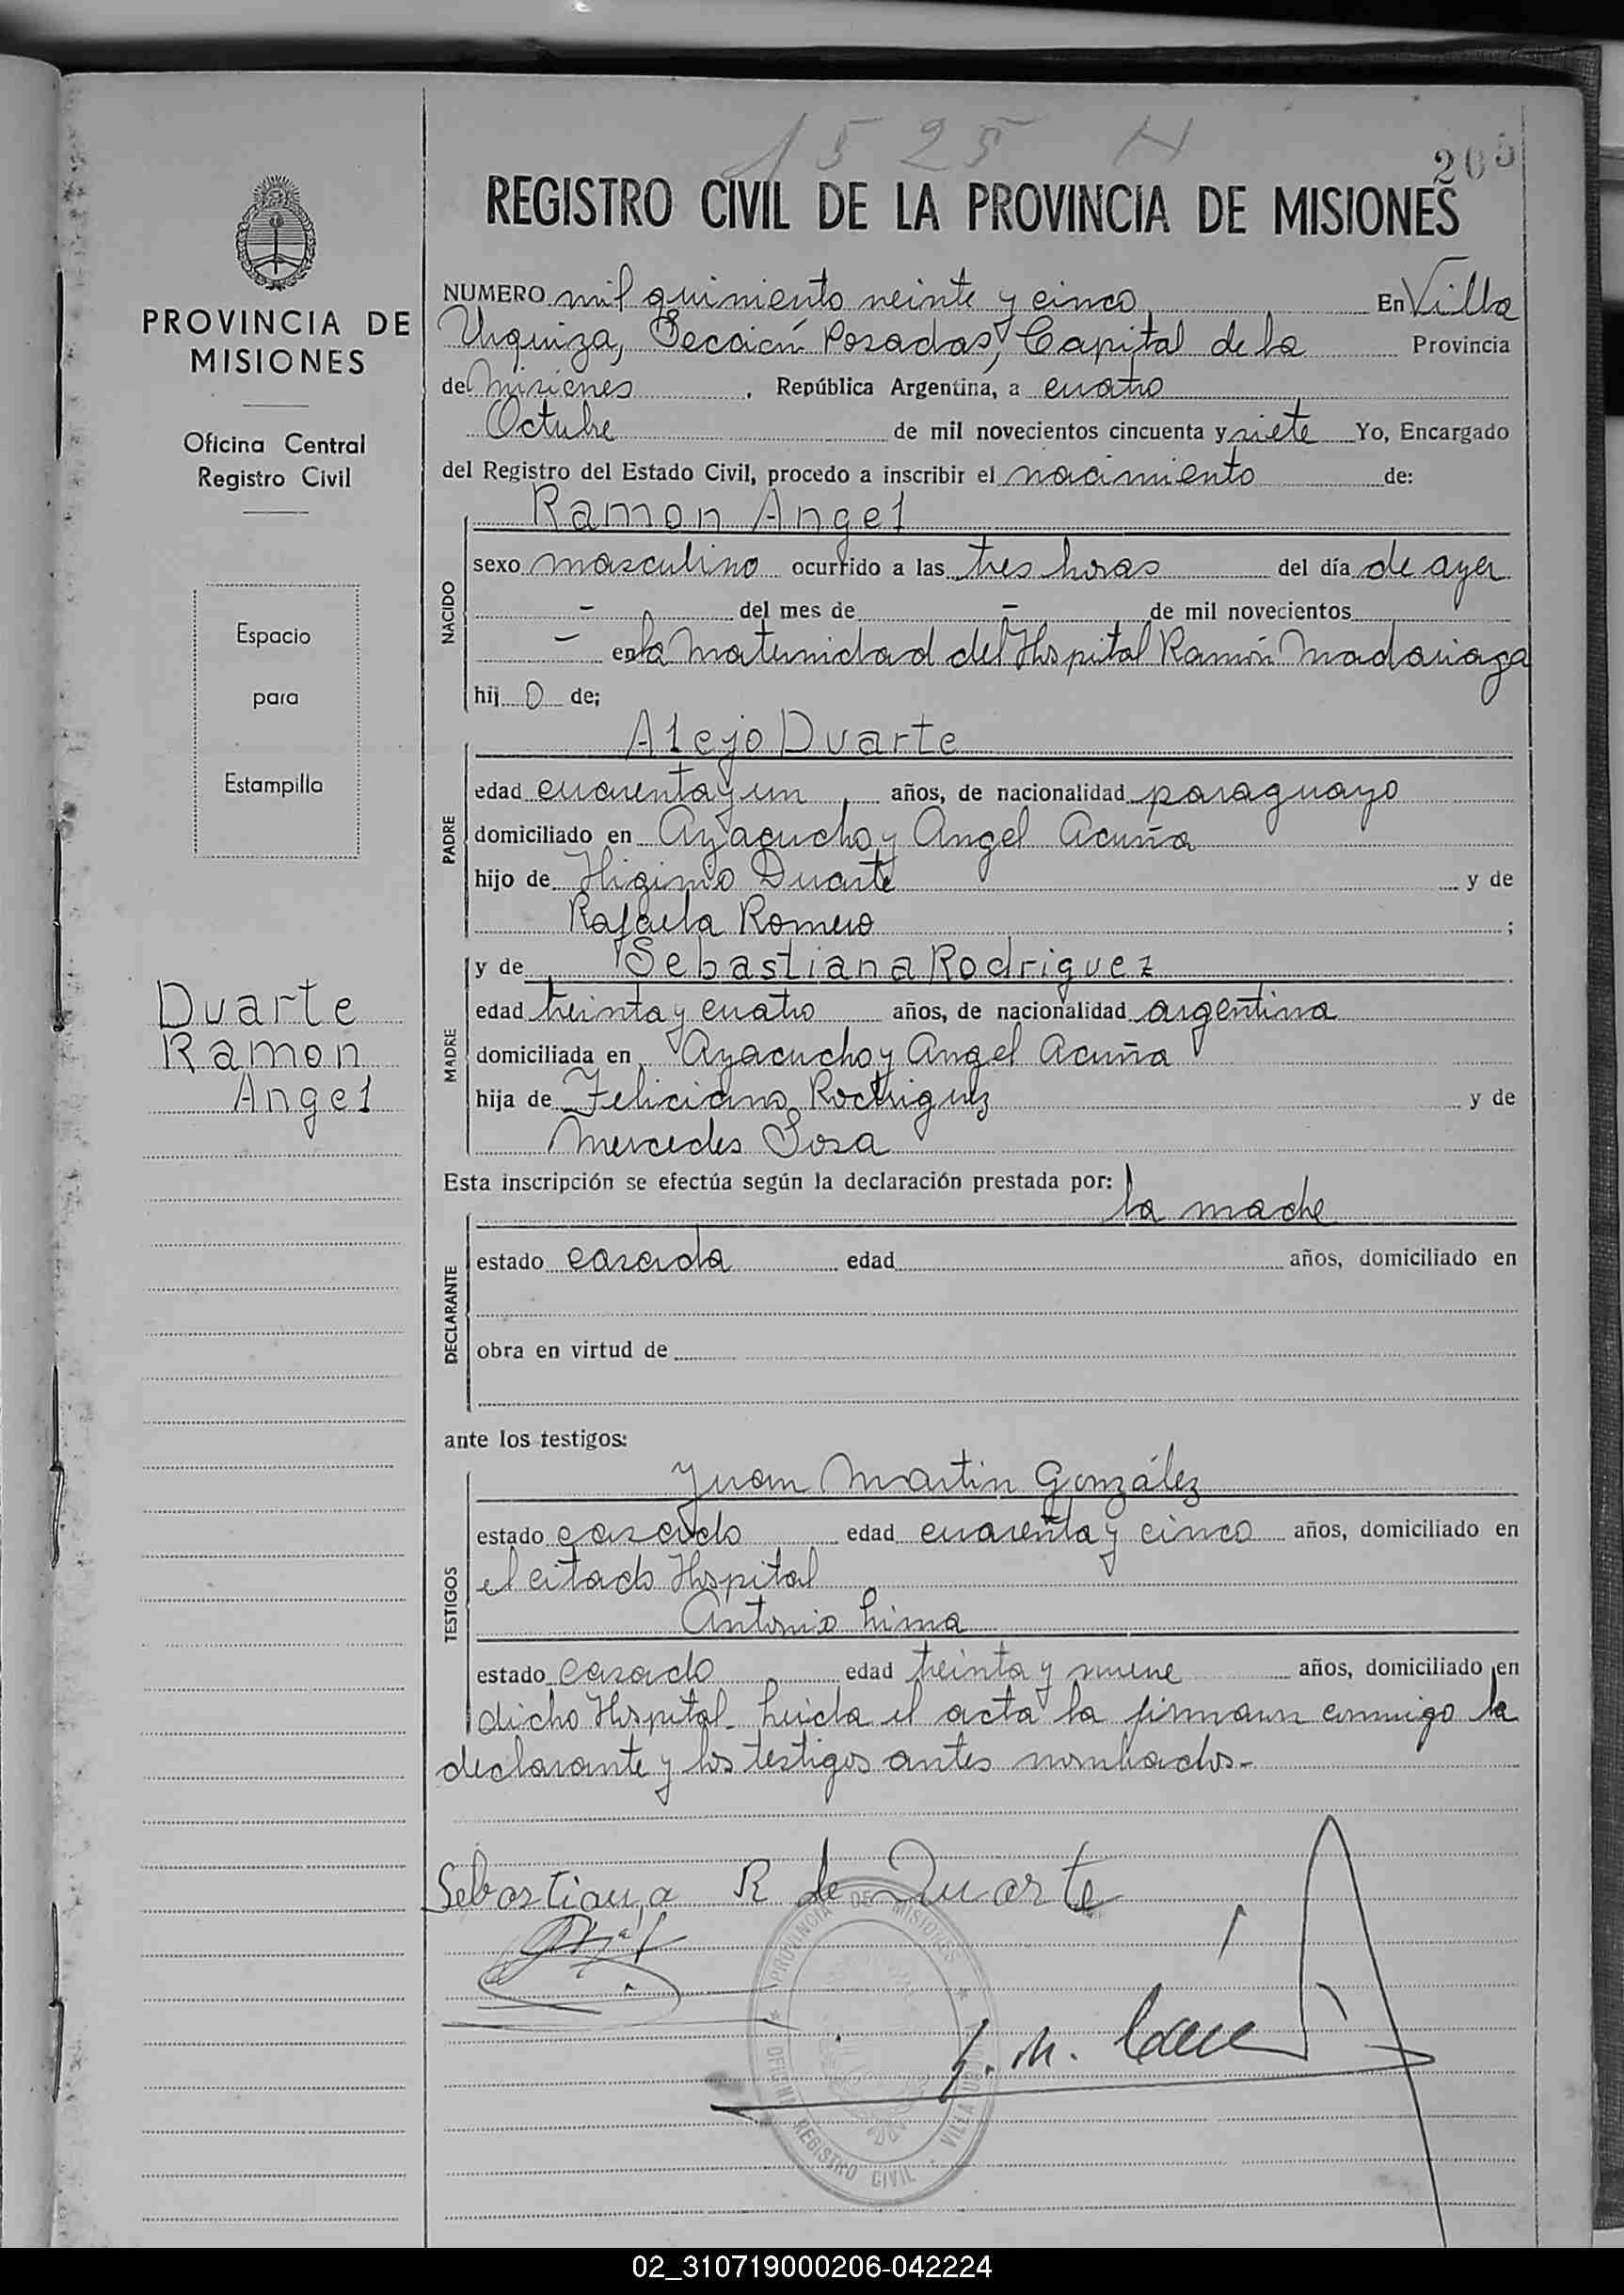 1525 N
205
REGISTRO CIVIL DE LA PROVINCIA DE MISIONES
PROVINCIA DE
MISIONES
Oficina Central
Registro Civil
Espacio
para
Estampilla
Duarte
Ramon
Angel
NUMERO mil quiniento veinte y cinco En Villa
Urquiza, Sección Posadas, Capital de la Provincia
de Misiones, República Argentina, a cuatro
Octubre de mil novecientos cincuenta y siete Yo, Encargado
del Registro del Estado Civil, procedo a inscribir el nacimiento de:
NACIDO
Ramon Angel
sexo masculino ocurrido a las tres horas del día de ayer
- del mes de - de mil novecientos
- en la Maternidad del Hospital Ramón Madariaga
hij o de;
PADRE
Alejo Duarte
edad cuarenta y un años, de nacionalidad paraguayo
domiciliado en Ayacucho y Angel Acuña
hijo de Higinio Duarte y de
Rafaela Romero ;
MADRE
y de Sebastiana Rodriguez
edad treinta y cuatro años, de nacionalidad argentina
domiciliada en Ayacucho y Angel Acuña
hija de Feliciano Rodriguez y de
Mercedes Sosa
Esta inscripción se efectúa según la declaración prestada por:
DECLARANTE
la madre
estado casada edad años, domiciliado en
obra en virtud de
ante los testigos:
TESTIGOS
Juan Martin González
estado casado edad cuarenta y cinco años, domiciliado en
el citado Hospital
Antonio Lima
estado casado edad treinta y nueve años, domiciliado en
dicho Hospital. Leida el acta la firman conmigo la
declarante y los testigos antes nombrados.-
Sebastiana R de Duarte
PROVINCIA DE MISIONES
REGISTRO CIVIL
02_310719000206-042224